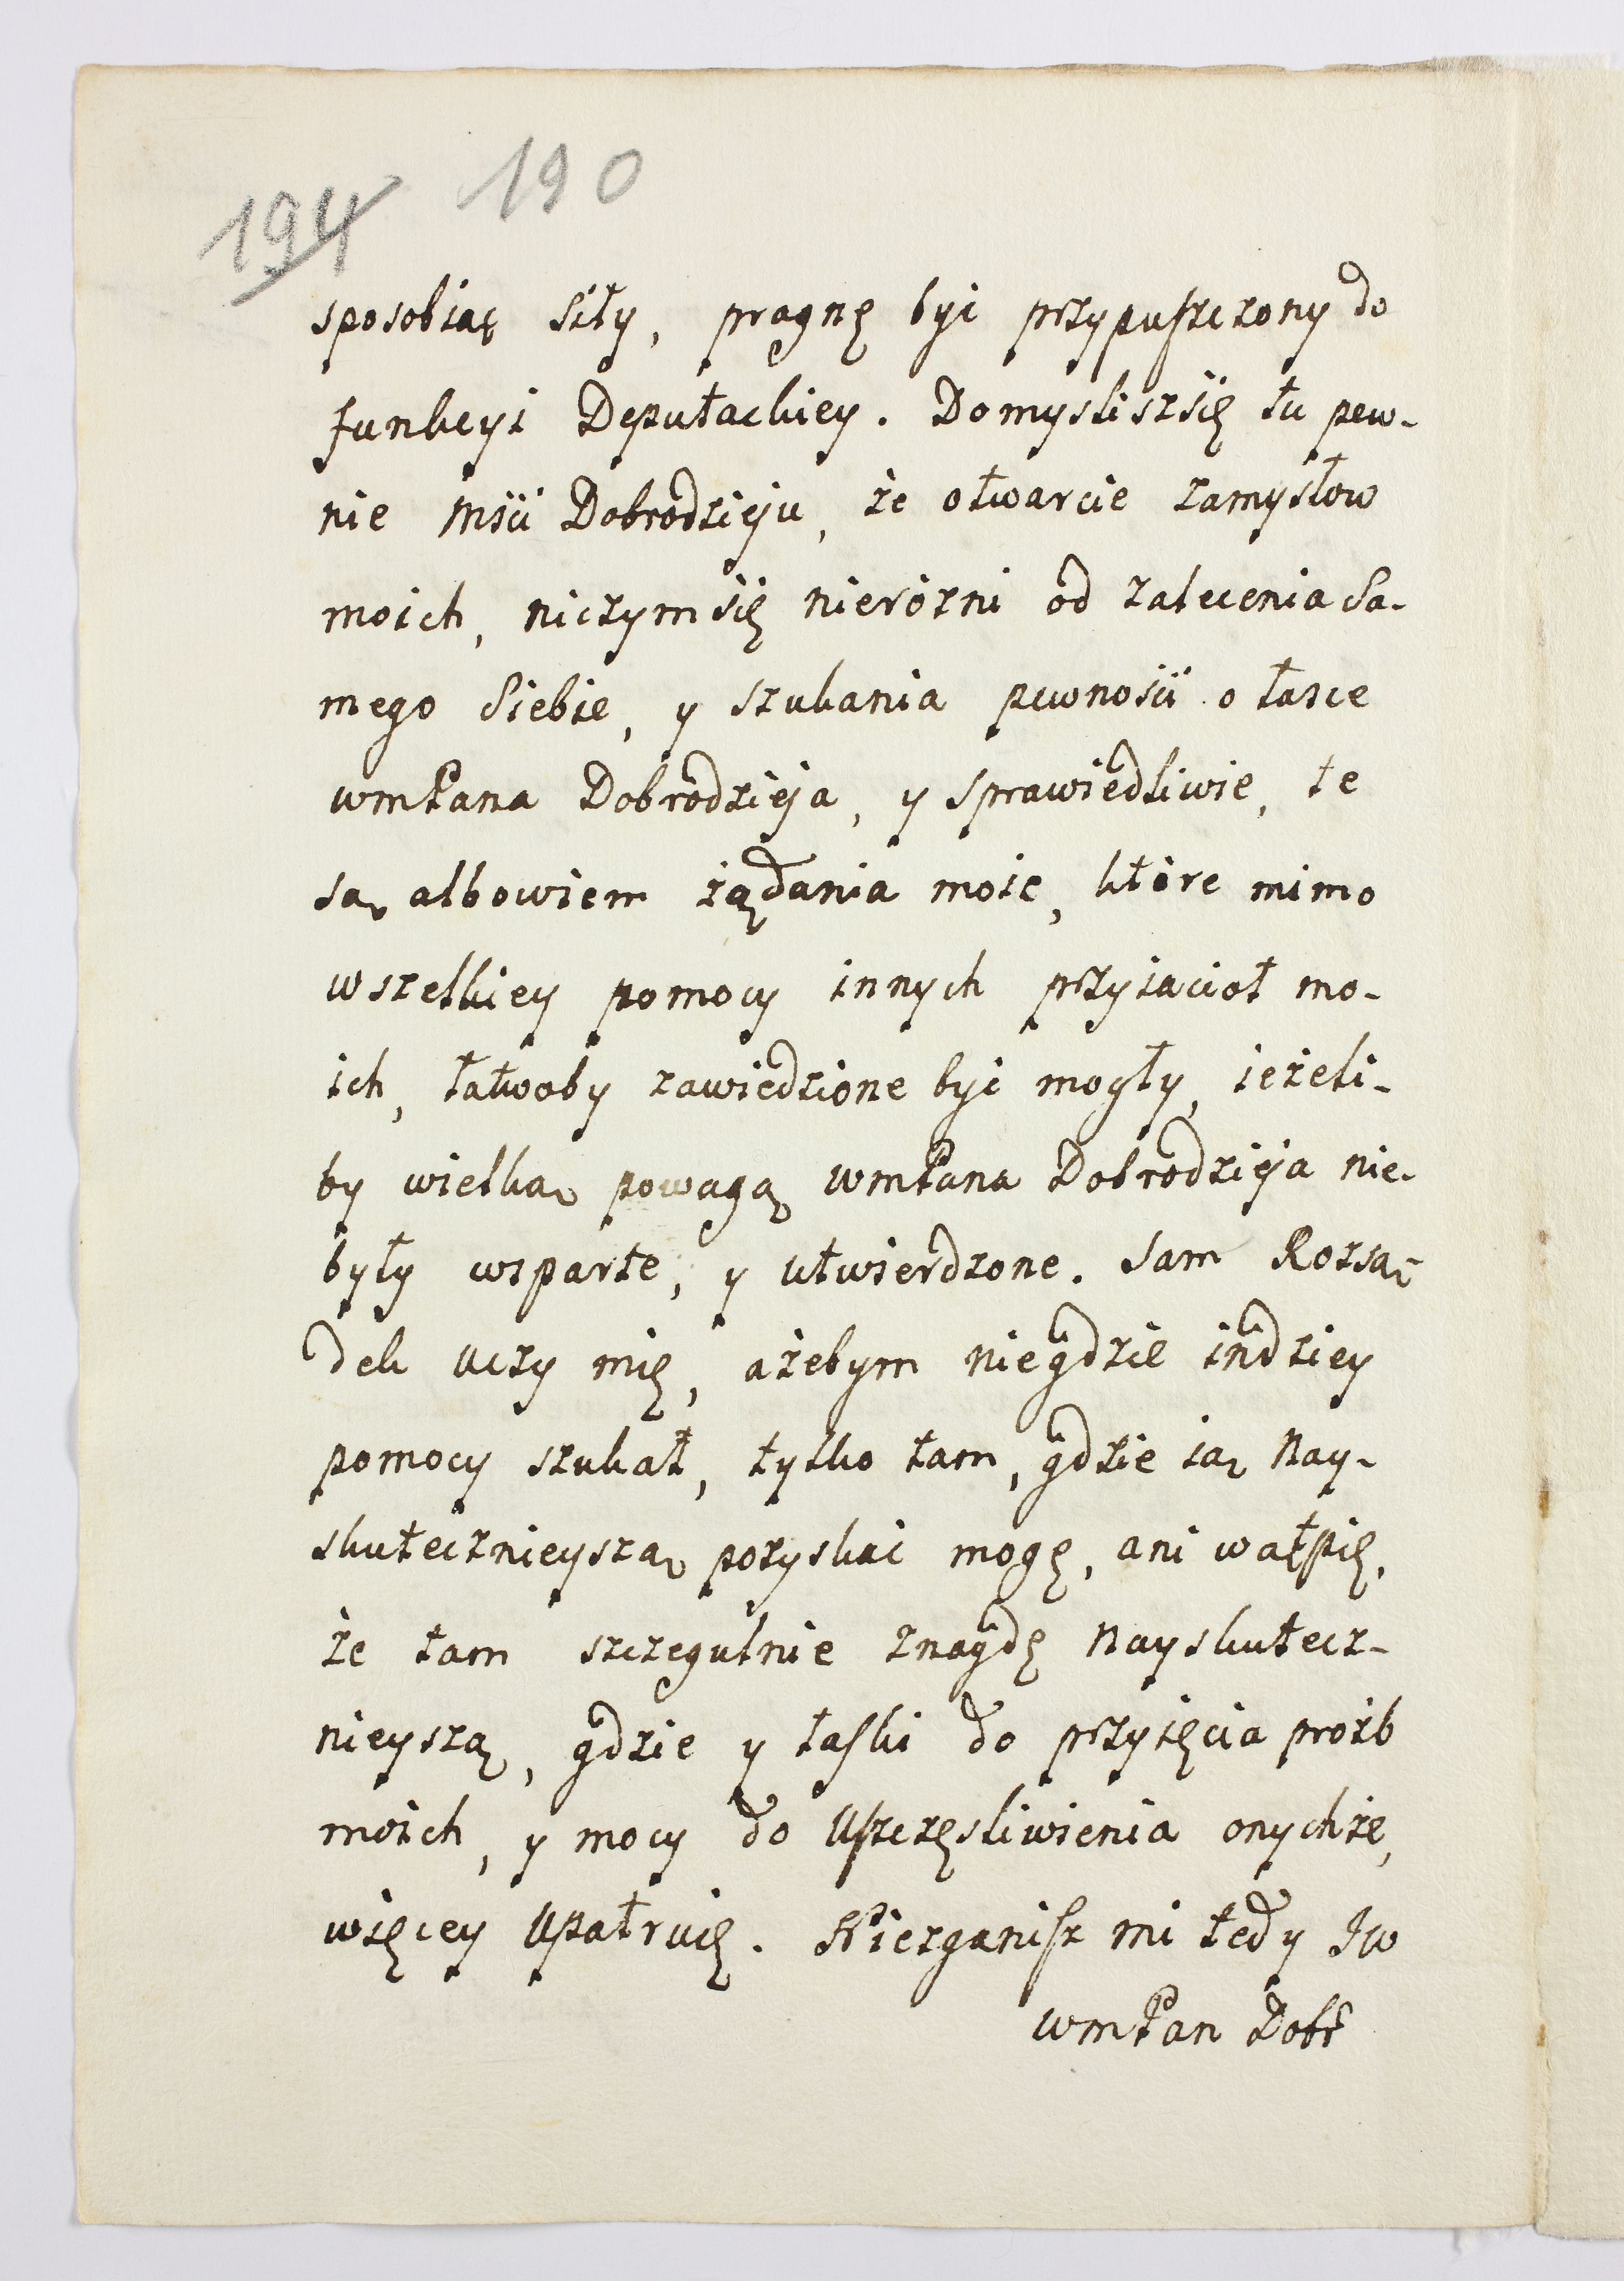 190
194
sposobiąc siły, pragnę być przypuszczony do
funkcyi Deputackiey. Domysliszsię tu pew-
nie Mści Dobrodzieju, że otwarcie zamysłow
moich, niczymsię nierózni od zalecenia Sa-
mego Siebie, y szukania pewności o łasce
WmPana Dobrodzieja, y sprawiedliwie, te
są albowiem żądania moie, które mimo
wszelkiey pomocy innych przyiacioł mo-
ich, łatwoby zawiedzione być mogły, ieżeli-
by wielką powagą WmPana Dobrodzieja nie-
były wsparte, y utwierdzone. Sam Rozsą-
dek uczy mię, ażebym niegdzie indziey
pomocy szukał, tylko tam, gdzie ią Nay-
skutecznieyszą pozyskać mogę, ani wątpię,
że tam szczegulnie znaydę Nayskutecz-
nieyszą, gdzie y łaski do przyięcia proźb
moich, y mocy do Uszczęsliwienia onychże,
więcey Upatruię. Niezganisz mi tedy JW
WmPan Dobr